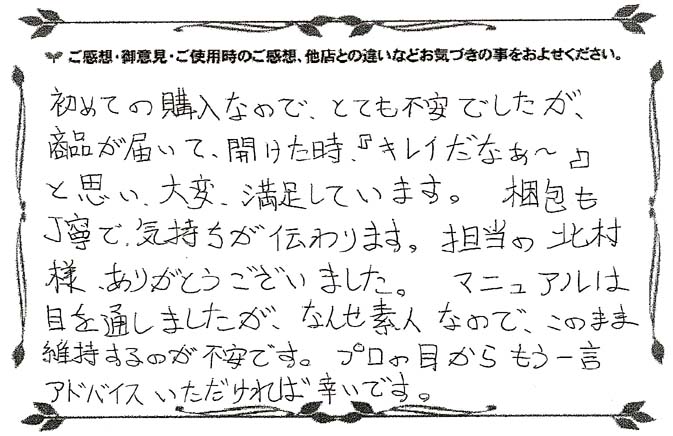 ご感想・御意見・ご使用時のご感想、他店との違いなどお気づきの事をおよせください。
初めての購入なので、とても不安でしたが、
商品が届いて、開けた時、『キレイだなぁ〜』
と思い、大変、満足しています。 梱包も
丁寧で、気持ちが伝わります。担当の北村
様、ありがとうございました。 マニュアルは
目を通しましたが、なんせ素人なので、このまま
維持するのが不安です。プロの目からもう一言
アドバイスいただければ幸いです。